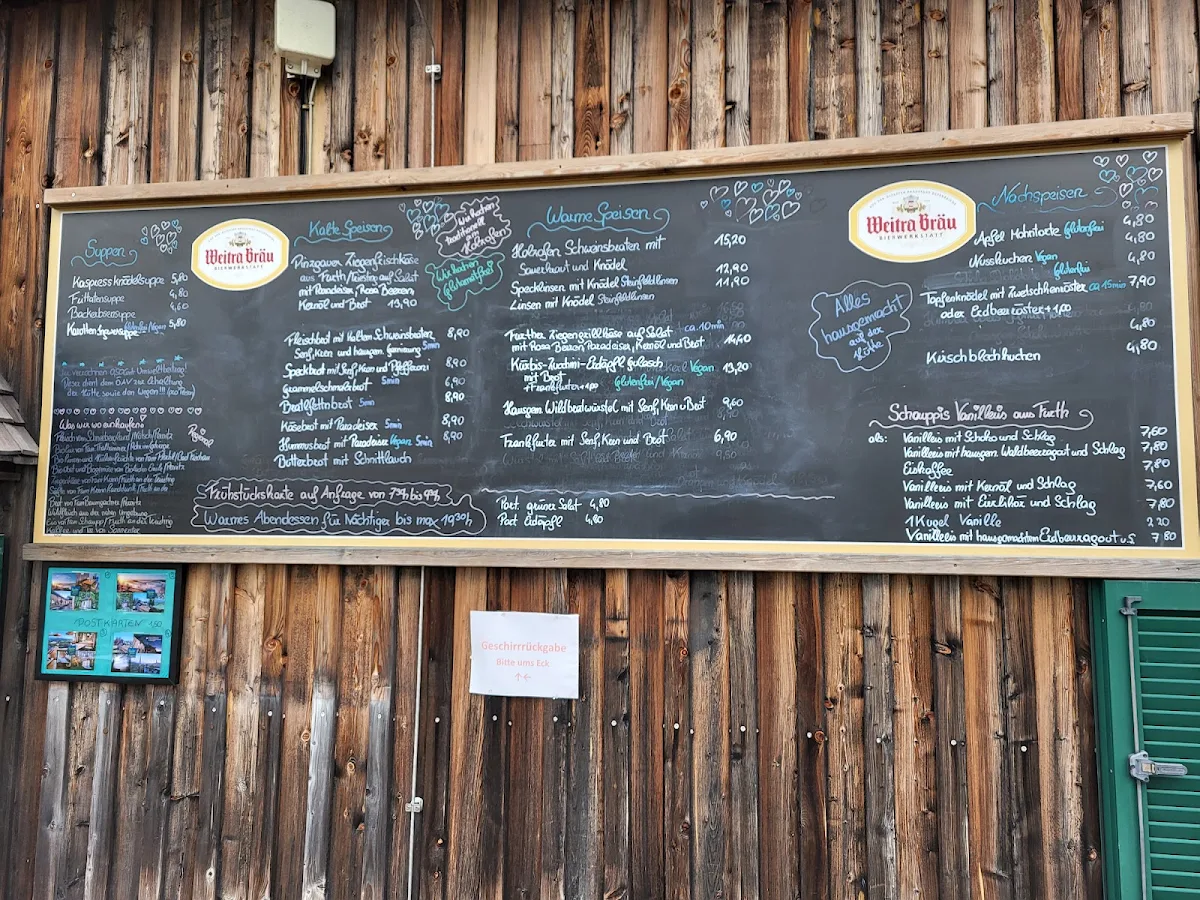 Suppen
Kaspressknödelsuppe 5,80
Frittatensuppe 4,80
Backerbsensuppe 4,80
Karottensuppe Glutenfrei/Vegan 5,80
der Hütte sowie den Wegen!!!
Was wir wo einkaufen!
Regional
Weitra Bräu
BIERWERKSTATT
Kalte Speisen
Pinzgauer Ziegenfrischkäse
aus Furth/Triesting auf Salat
mit Paradeiser, Rosa Beeren
Kernöl und Brot 13,90
Fleischbrot mit kaltem Schweinsbraten 8,90
Senf, Kren und hausgem. Garnierung 5min
Speckbrot mit Senf, Kren und Pfefferoni 8,90
Grammelschmalzbrot 5min 6,90
Bratlfettnbrot 5min 6,90
Käsebrot mit Paradeiser 5min 8,90
Hummusbrot mit Paradeiser Vegan 5min 8,90
Butterbrot mit Schnittlauch
Frühstückskarte auf Anfrage von 7³⁰h bis 9³⁰h
Warmes Abendessen für Nächtiger bis max 19³⁰h
Wir kochen
traditionell
am
Holzofen
Wir kochen
Glutenfrei
Warme Speisen
Holzofen Schweinsbraten mit 15,20
Sauerkraut und Knödel
Specklinsen mit Knödel Steinfeldlinsen 12,90
Linsen mit Knödel Steinfeldlinsen 11,90
Further Ziegengrillkäse auf Salat ca. 10min
mit Rosa Beeren, Paradeiser, Kernöl und Brot 14,40
Kürbis-Zucchini-Erdäpfl Gulasch Vegan 13,20
mit Brot
+Frankfurter+1,00 Glutenfrei/Vegan
Hausgem. Wildbratwürstel mit Senf, Kren u Brot 9,60
Frankfurter mit Senf, Kren und Brot 6,90
Port. grüner Salat 4,80
Port Erdäpfl 4,80
Alles
hausgemacht
auf der
Hütte
Weitra Bräu
BIERWERKSTATT
Nachspeisen
Apfel Mohntorte Glutenfrei 4,80
Nusskuchen Vegan 4,80
Glutenfrei
Topfenknödel mit Zwetschkenröster ca 15min 7,90
oder Erdbeerröster +1,00
4,80
Kirschblechkuchen 4,80
Schauppis Vanilleeis aus Furth
als: Vanilleeis mit Schoko und Schlag 7,60
Vanilleeis mit hausgem. Waldbeerragout und Schlag 7,80
Eiskaffee 7,80
Vanilleeis mit Kernöl und Schlag 7,60
Vanilleeis mit Eierlikör und Schlag 7,80
1 Kugel Vanille 2,20
Vanilleeis mit hausgemachtem Erdbeerragout u.S 7,80
POSTKARTEN 1,50
Geschirrrückgabe
Bitte ums Eck
↑←